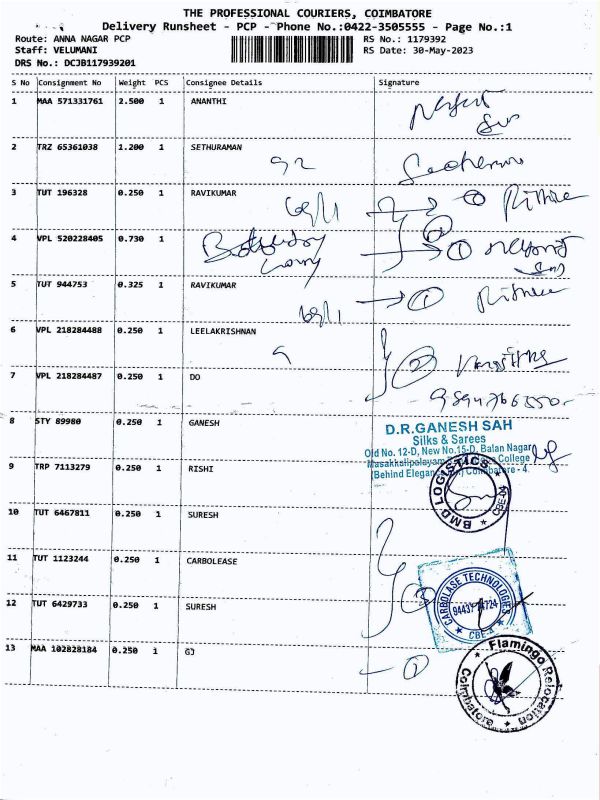 THE PROFESSIONAL COURIERS, COIMBATORE
Delivery Runsheet - PCP - Phone No.:0422-3505555 - Page No.:1
Route: ANNA NAGAR PCP RS No.: 1179392
Staff: VELUMANI RS Date: 30-May-2023
DRS No.: DCJB117939201
S No Consignment No Weight PCS Consignee Details Signature
1 MAA 571331761 2.500 1 ANANTHI
2 TRZ 65361038 1.200 1 SETHURAMAN
92
3 TUT 196328 0.250 1 RAVIKUMAR
69/1
4 VPL 520228405 0.730 1
1
5 TUT 944753 0.325 1 RAVIKUMAR
69/1 1
6 VPL 218284488 0.250 1 LEELAKRISHNAN
9 2
7 VPL 218284487 0.250 1 DO
8 STY 89980 0.250 1 GANESH
D.R.GANESH SAH
Silks & Sarees
Old No. 12-D, New No.15-D, Balan Nagar
Masakkalipalayam College
(Behind Coimbatore - 4
9 TRP 7113279 0.250 1 RISHI
BMD LOGISTICS
10 TUT 6467811 0.250 1 SURESH
11 TUT 1123244 0.250 1 CARBOLEASE
12 TUT 6429733 0.250 1 SURESH
3
CARBOLASE TECHNOLOGIES
CBE-4
13 MAA 102828184 0.250 1 GJ
1
Flamingo Relocation
Coimbatore